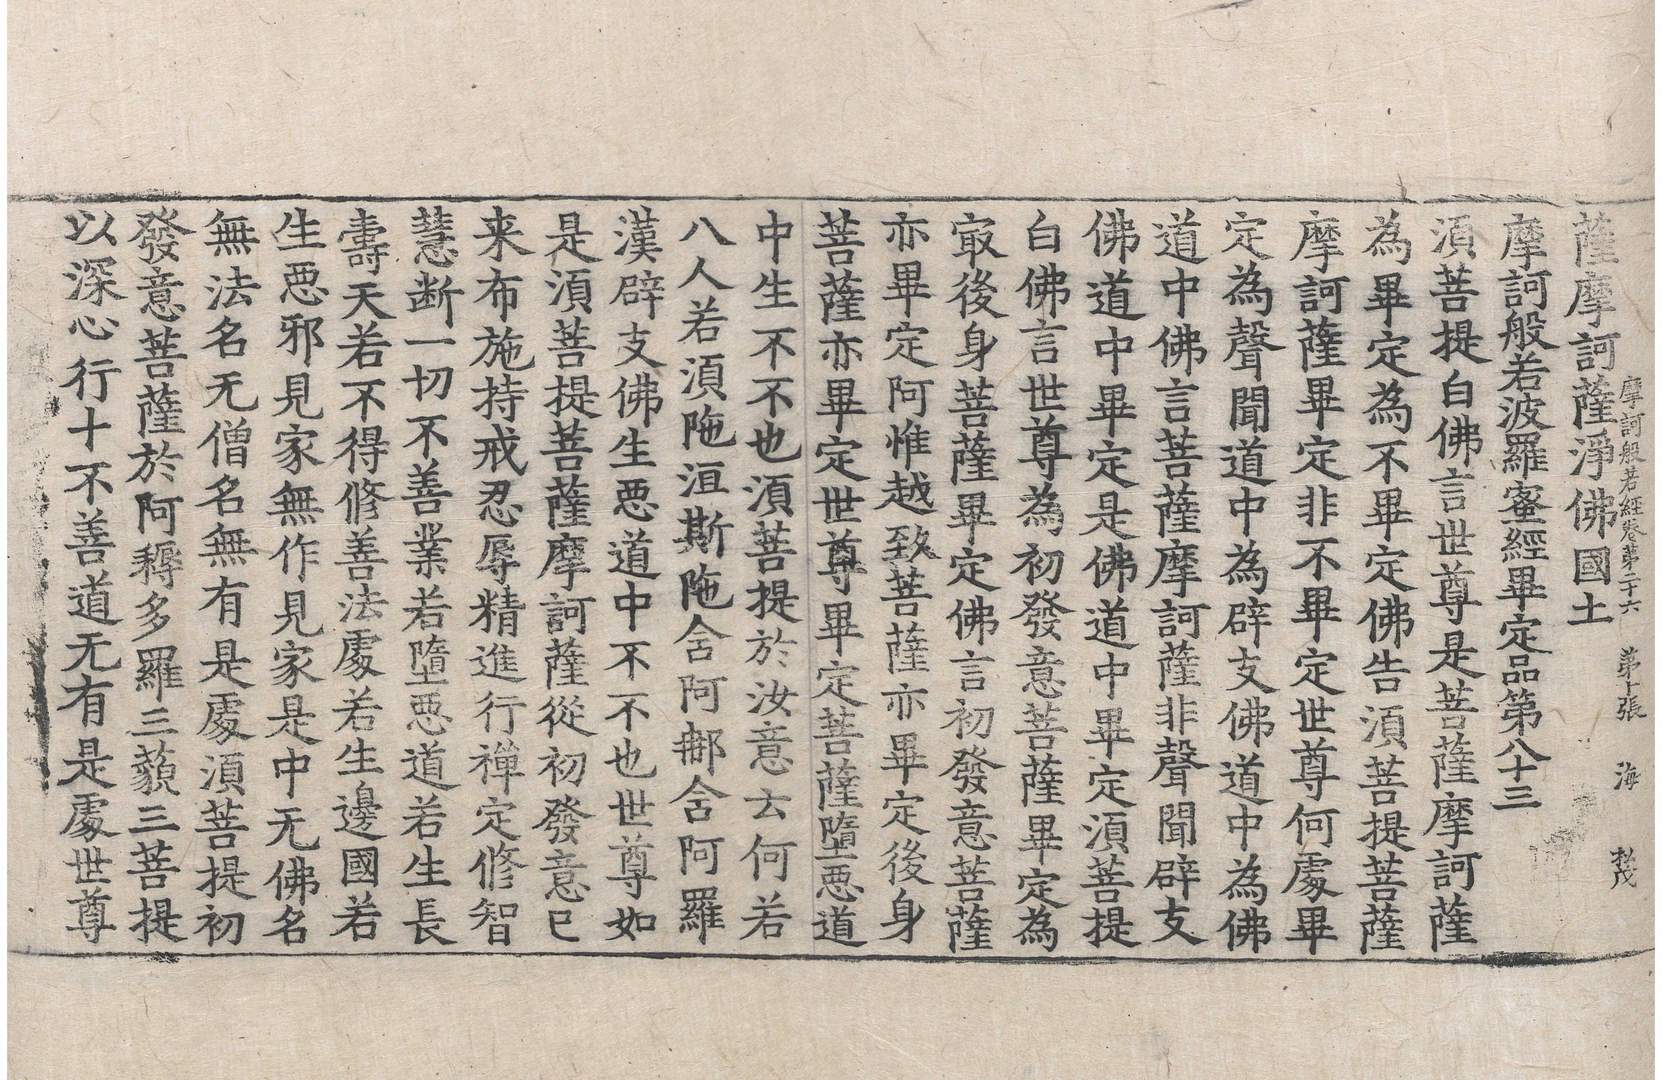 摩訶般若經卷第二十六　第十張　海
薩摩訶薩淨佛國土
摩訶般若波羅蜜經畢定品第八十三
湏菩提白佛言世尊是菩薩摩訶薩
為畢定為不畢定佛告湏菩提菩薩
摩訶薩畢定非不畢定世尊何處畢
定為聲聞道中為辟支佛道中為佛
道中佛言菩薩摩訶薩非聲聞辟支
佛道中畢定是佛道中畢定湏菩提
白佛言世尊為初發意菩薩畢定為
冣後身菩薩畢定佛言初發意菩薩
亦畢定阿惟越致菩薩亦畢定後身
菩薩亦畢定世尊畢定菩薩墮惡道
中生不不也湏菩提於汝意云何若
八人若湏陁洹斯陁含阿那含阿羅
漢辟支佛生惡道中不不也世尊如
是湏菩提菩薩摩訶薩從初發意已
来布施持戒忍辱精進行禪定修智
慧断一切不善業若墮惡道若生長
壽天若不得修善法處若生邊國若
生惡邪見家無作見家是中无佛名
無法名无僧名無有是處湏菩提初
發意菩薩於阿耨多羅三藐三菩提
以深心行十不善道无有是處世尊